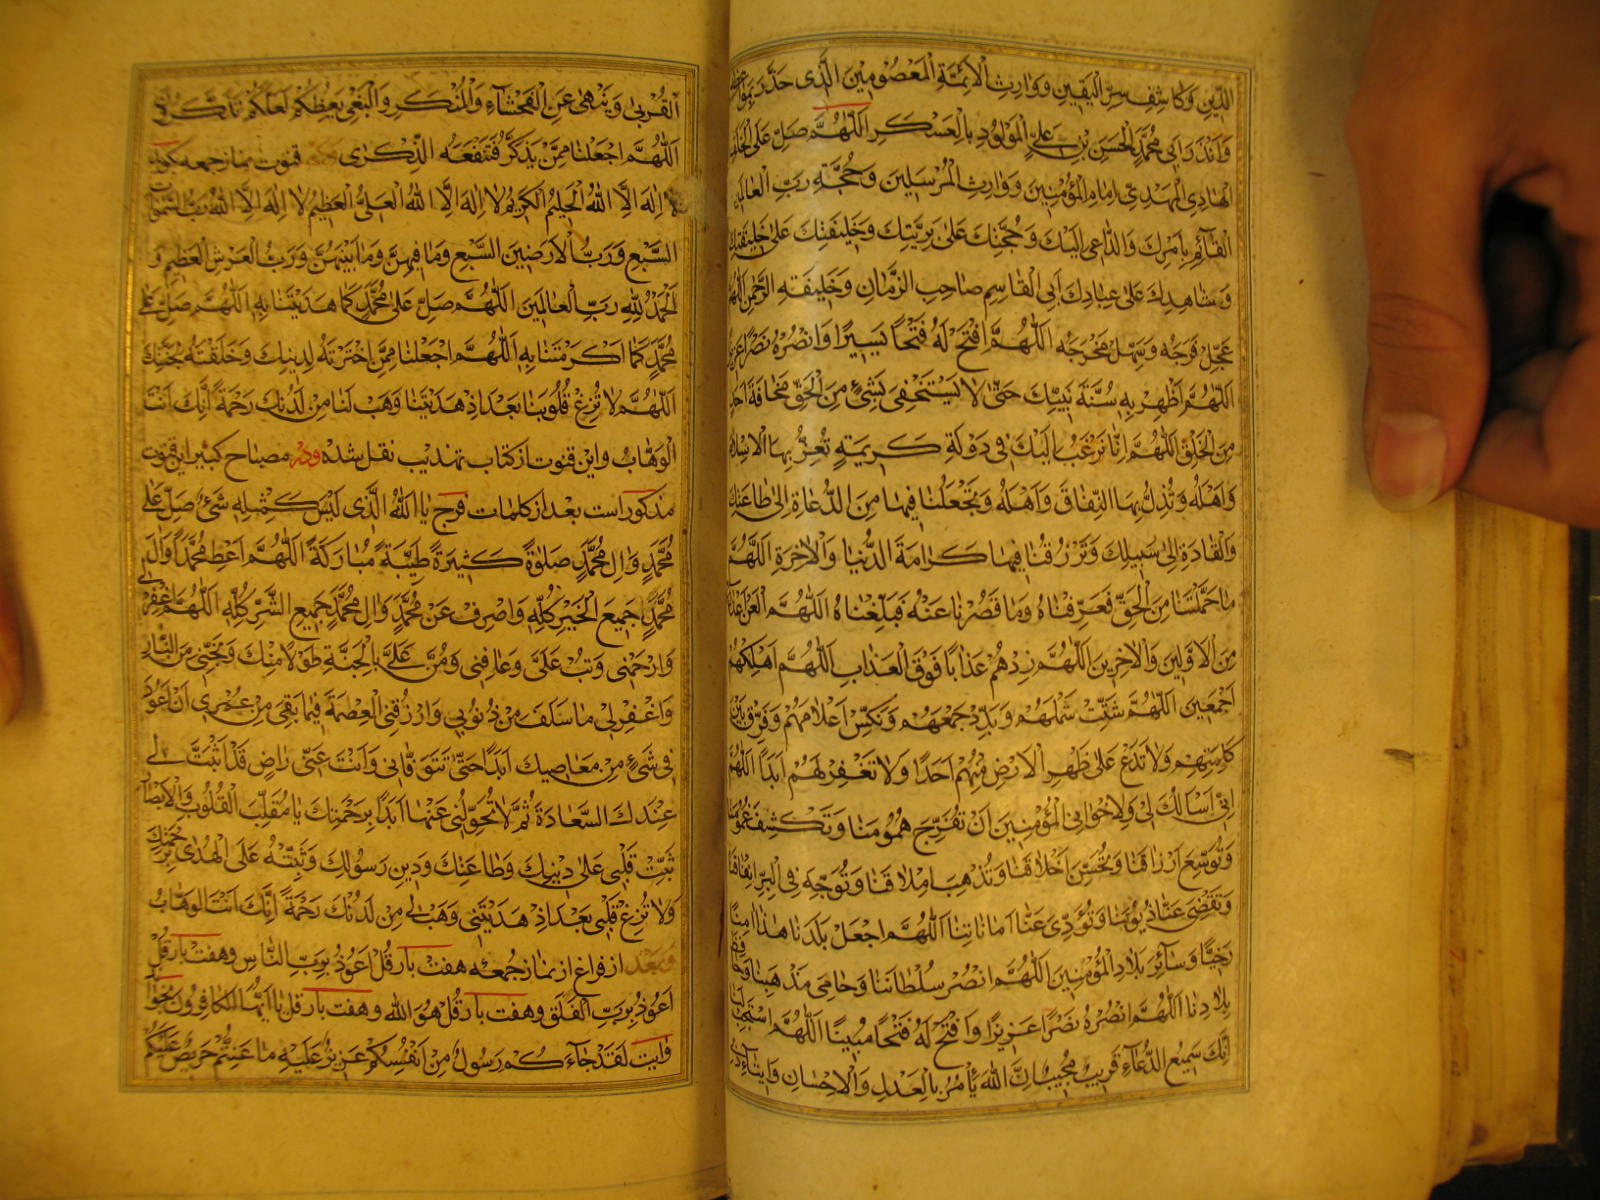 الدین وکاشف سر الیقین ووارث الائمة المعصومین الذی حذر بمواعظه
وانذر وابی محمد الحسن بن علی المولود بالعسکر اللهم صل علی الخلف
الهادی المهدی امام المؤمنین ووارث المرسلین وحجة رب العالمین
القائم بامرک والداعی الیک وحجتک علی بریتک وخلیفتک علی خلیقتک
وشاهدک علی عبادک ابی القاسم صاحب الزمان وخلیفة الرحمن اللهم
عجل فرجه وسهل مخرجه اللهم افتح له فتحا یسیرا وانصره نصرا عزیزا
اللهم اظهر به سنة نبیک حتی لا یستخفی بشیء من الحق مخافة احد
من الخلق اللهم انا نرغب الیک فی دولة کریمة تعز بها الاسلام
واهله وتذل بها النفاق واهله وتجعلنا فیها من الدعاة الی طاعتک
والقادة الی سبیلک وترزقنا فیها کرامة الدنیا والاخرة اللهم
ما حملتنا من الحق فعرفناه وما قصرنا عنه فبلغناه اللهم العن اعداء
من الاولین والاخرین اللهم زدهم عذابا فوق العذاب اللهم اهلکهم
اجمعین اللهم شتت شملهم وبدد جمعهم ونکس اعلامهم وفرق بین
کلمتهم ولا تدع علی ظهر الارض منهم احدا ولا تغفر لهم ابدا اللهم
انی اسالک لی ولاخوانی المؤمنین ان تفرج همومنا وتکشف غمومنا
وتوسع ارزاقنا وتحسن اخلاقنا وتذهب املاقنا وتوجه فی البر انفاقنا
وتقضی عنا دیوننا وتؤدی عنا اماناتنا اللهم اجعل بلدنا هذا امنا
رخیا وسائر بلاد المؤمنین اللهم انصر سلطاننا وحامی مذهبنا
بلادنا اللهم انصره نصرا عزیزا وافتح له فتحا مبینا اللهم استجب لنا
انک سمیع الدعاء قریب مجیب ان الله یأمر بالعدل والاحسان وایتاء ذی
القربی وینهی عن الفحشاء والمنکر والبغی یعظکم لعلکم تذکرون
اللهم اجعلنا ممن یذکر فتنفعه الذکری قنوت نماز جمعه بگوید
لا اله الا الله الحلیم الکریم لا اله الا الله العلی العظیم لا اله الا الله رب السموات
السبع ورب الارضین السبع وما فیهن وما بینهن ورب العرش العظیم و
الحمد لله رب العالمین اللهم صل علی محمد کما هدیتنا به اللهم صل علی
محمد کما اکرمتنا به اللهم اجعلنا ممن اخترته لدینک وخلقته لجنتک
اللهم لا تزغ قلوبنا بعد اذ هدیتنا وهب لنا من لدنک رحمة انک انت
الوهاب واین قنوت از کتاب تهذیب نقل شده ودر مصباح کبیر این قنوت
مذکور است بعد از کلمات فرج یا الله الذی لیس کمثله شیء صل علی
محمد وال محمد صلوة کثیرة طیبة مبارکة اللهم اعط محمدا وال
محمد جمیع الخیر کله واصرف عن محمد وال محمد جمیع الشر کله اللهم اغفر لی
وارحمنی وتب علی وعافنی ومن علی بالجنة طولا منک ونجنی من النار
واغفر لی ما سلف من ذنوبی وارزقنی العصمة فیما بقی من عمری ان اعود
فی شیء من معاصیک ابدا حتی تتوفانی وانت عنی راض قد اثبت لی
عندک السعادة ثم لا تحولنی عنها ابدا برحمتک یا مقلب القلوب والابصار
ثبت قلبی علی دینک وطاعتک ودین رسولک وثبته علی الهدی برحمتک
ولا تزغ قلبی بعد اذ هدیتنی وهب لی من لدنک رحمة انک انت الوهاب
وبعد از فراغ از نماز جمعه هفت بار قل اعوذ برب الناس وهفت بار قل
اعوذ برب الفلق وهفت بار قل هو الله وهفت بار قل یا ایها الکافرون بخواند
وایت لقد جاءکم رسول من انفسکم عزیز علیه ما عنتم حریص علیکم